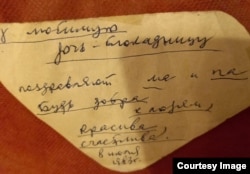 любимую
дочь-блокадницу
поздравляют ма и па
Будь добра
красива,
счастлива.
8 июля
Courtesy Image